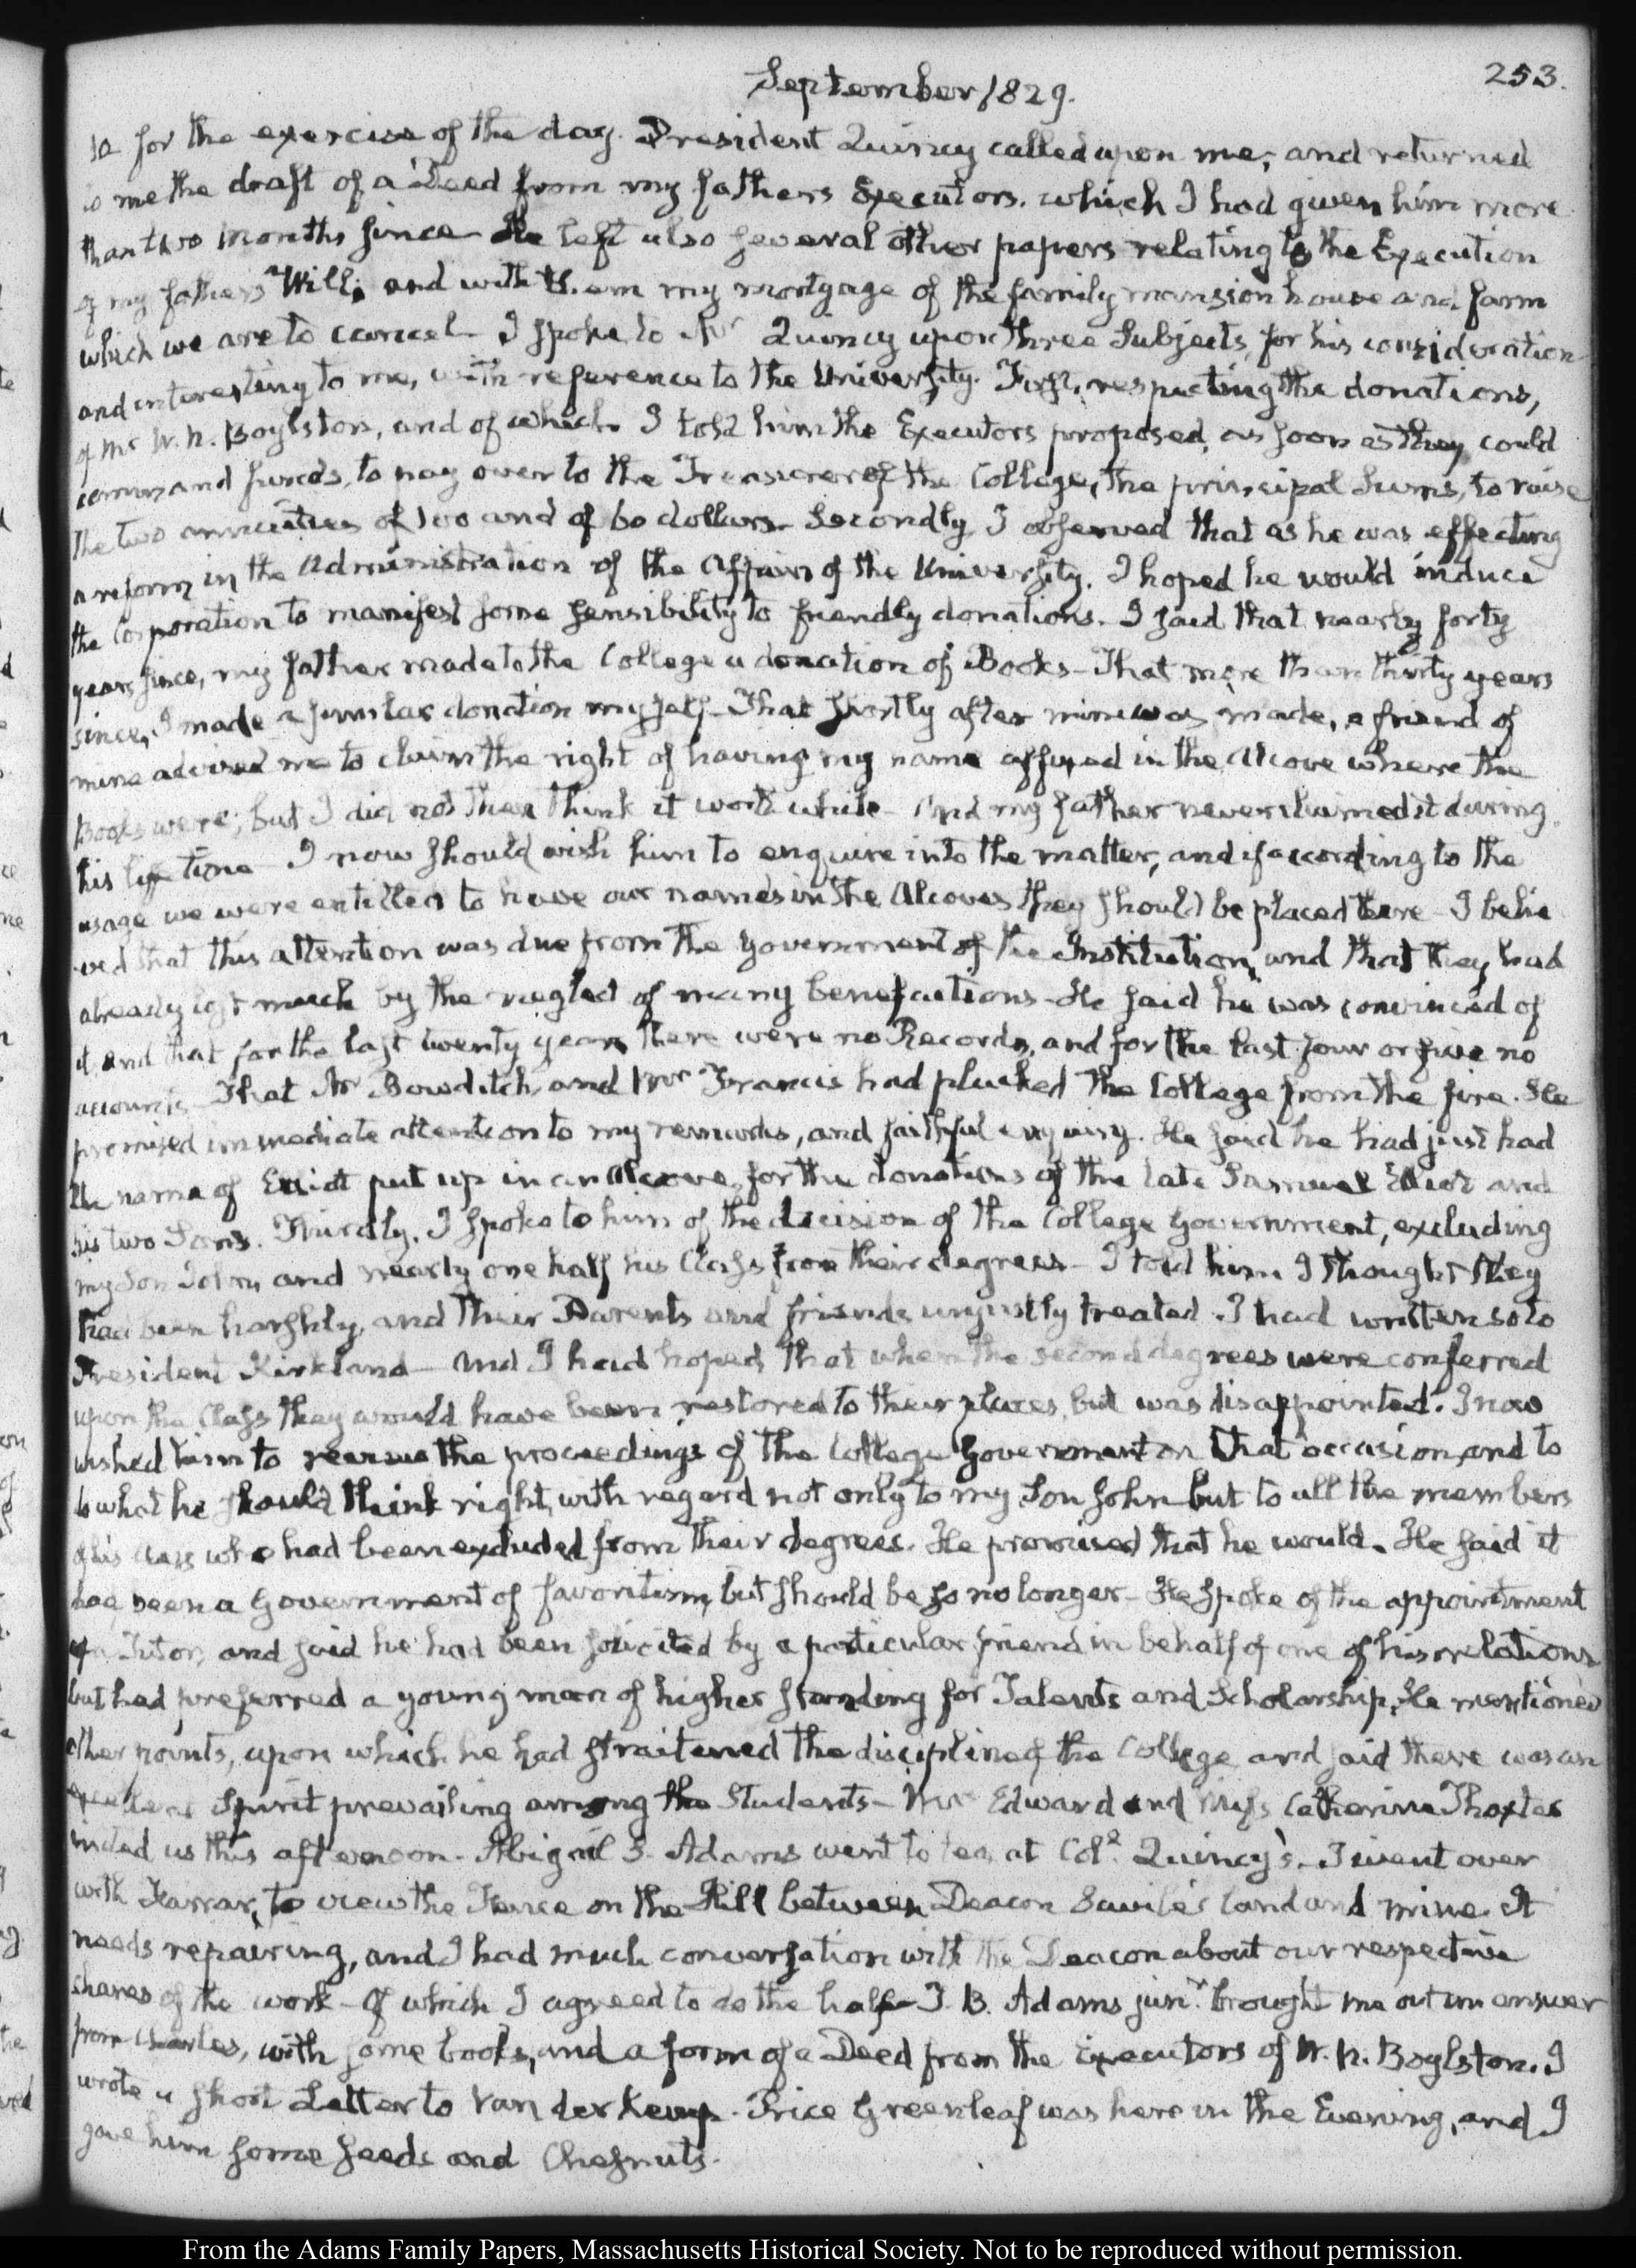 September 1829.
253.
for the exercise of the day. President Quincy called upon me, and returned
to me the draft of a Deed from my fathers Executors, which I had given him more
than two Months since – He left also several other papers relating to the Execution
of my fathers Will; and with them my mortgage of the family mansion house and farm
which we are to cancel – I spoke to Mr Quincy upon three Subjects, for his consideration
and interesting to me, with reference to the University. First, respecting the donations,
of Mr W. N. Boylston, and of which I told him the Executors proposed, as soon as they could
command funds, to pay over to the Treasurer of the College, the principal sums, to raise
the two annuities of 100 and of 60 dollars – Secondly I observed that as he was effecting
a reform in the Administration of the Affairs of the University, I hoped he would induce
the Corporation to manifest some sensibility to friendly donations. I said that nearly forty
years since, my father made to the College a donation of Books – That more than thirty years
since, I made a similar donation myself – That shortly after mine was made, a friend of
mine advised me to claim the right of having my name affixed in the Alcove where the
Books were; but I did not then think it worth while – And my father never claimed it during
his life time – I now should wish him to enquire into the matter, and if according to the
usage we were entitled to have our names in the Alcoves they should be placed there – I belie
ved that this attention was due from the Government of the Institution, and that they had
already lost much by the neglect of many benefactions – He said he was convinced of
it and that for the last twenty years there were no Records, and for the last four or five no
accounts – That Mr Bowditch, and Mr Francis had plucked the College from the fire. He
promised immediate attention to my remarks, and faithful enquiry. He said he had just had
the name of Eliot put up in an Alcove, for the donations of the late Samuel Eliot and
his two Sons. Thirdly, I spoke to him of the decision of the College Government, excluding
my Son John, and nearly one half his Class from their degrees – I told him I thought they
had been harshly, and their Parents and friends unjustly treated. I had written so to
President Kirkland – And I had hoped that when the second degrees were conferred
upon the Class they would have been restored to their places, but was disappointed. I now
wished him to review the proceedings of the College Government on that occasion, and to
do what he should think right, with regard not only to my Son John but to all the members
of his Class who had been excluded from their degrees. He promised that he would. He said it
had been a Government of favoritism, but should be so no longer – He spoke of the appointment
of a Tutor, and said he had been solicited by a particular friend in behalf of one of his relations
but had preferred a young man of higher standing for Talents and Scholarship. He mentioned
other points, upon which he had straitened the discipline of the College and said there was an
excellent Spirit prevailing among the Students – Mrs Edward and Miss Catherine Thaxter
visited us this afternoon. Abigail S. Adams went to tea at Col.l Quincy's – I went over
with Farrar, to view the Fence on the Hill between Deacon Savile's land and mine. It
needs repairing, and I had much conversation with the Deacon about our respective
shares of the work – Of which I agreed to do the half – T. B. Adams junr. brought me out an answer
from Charles, with some books, and a form of a Deed from the Executors of W. N. Boylston. I
wrote a short Letter to Van der Kemp. Price Greenleaf was here in the Evening, and I
gave him some seeds and Chesnuts.
From the Adams Family Papers, Massachusetts Historical Society. Not to be reproduced without permission.